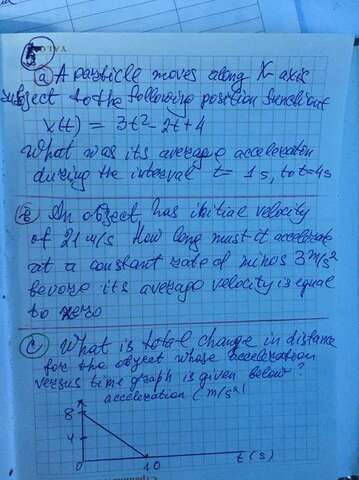 5
a) A particle moves along X-axis
subject to the following position function!
x(t) = 3t²-2t+4
What was its average acceleration
during the interval t= 1s, to t=4s
b) An object has initial velocity
of 21 m/s How long must it accelerate
at a constant rate of minos 3 m/s²
bevore its average velocity is equal
to zero
c) What is total change in distance
for the object whose acceleration
versus time graph is given below?
acceleration (m/s²)
8
4
10
t(s)